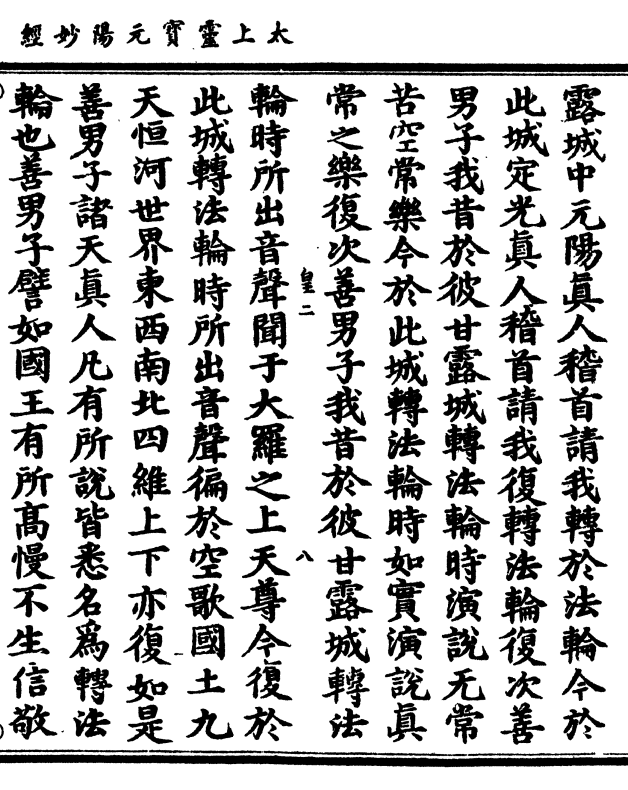 太上靈寶元陽妙經
露城中元陽眞人稽首請我轉於法輪今於
此城定光眞人稽首請我復轉法輪復次善
男子我昔於彼甘露城轉法輪時演說无常
苦空常樂今於此城轉法輪時如實演說眞
常之樂復次善男子我昔於彼甘露城轉法
皇二
八
輪時所出音聲聞于大羅之上天尊今復於
此城轉法輪時所出音聲徧於空歌國土九
天恒河世界東西南北四維上下亦復如是
善男子諸天眞人凡有所說皆悉名爲轉法
輪也善男子譬如國王有所高慢不生信敬